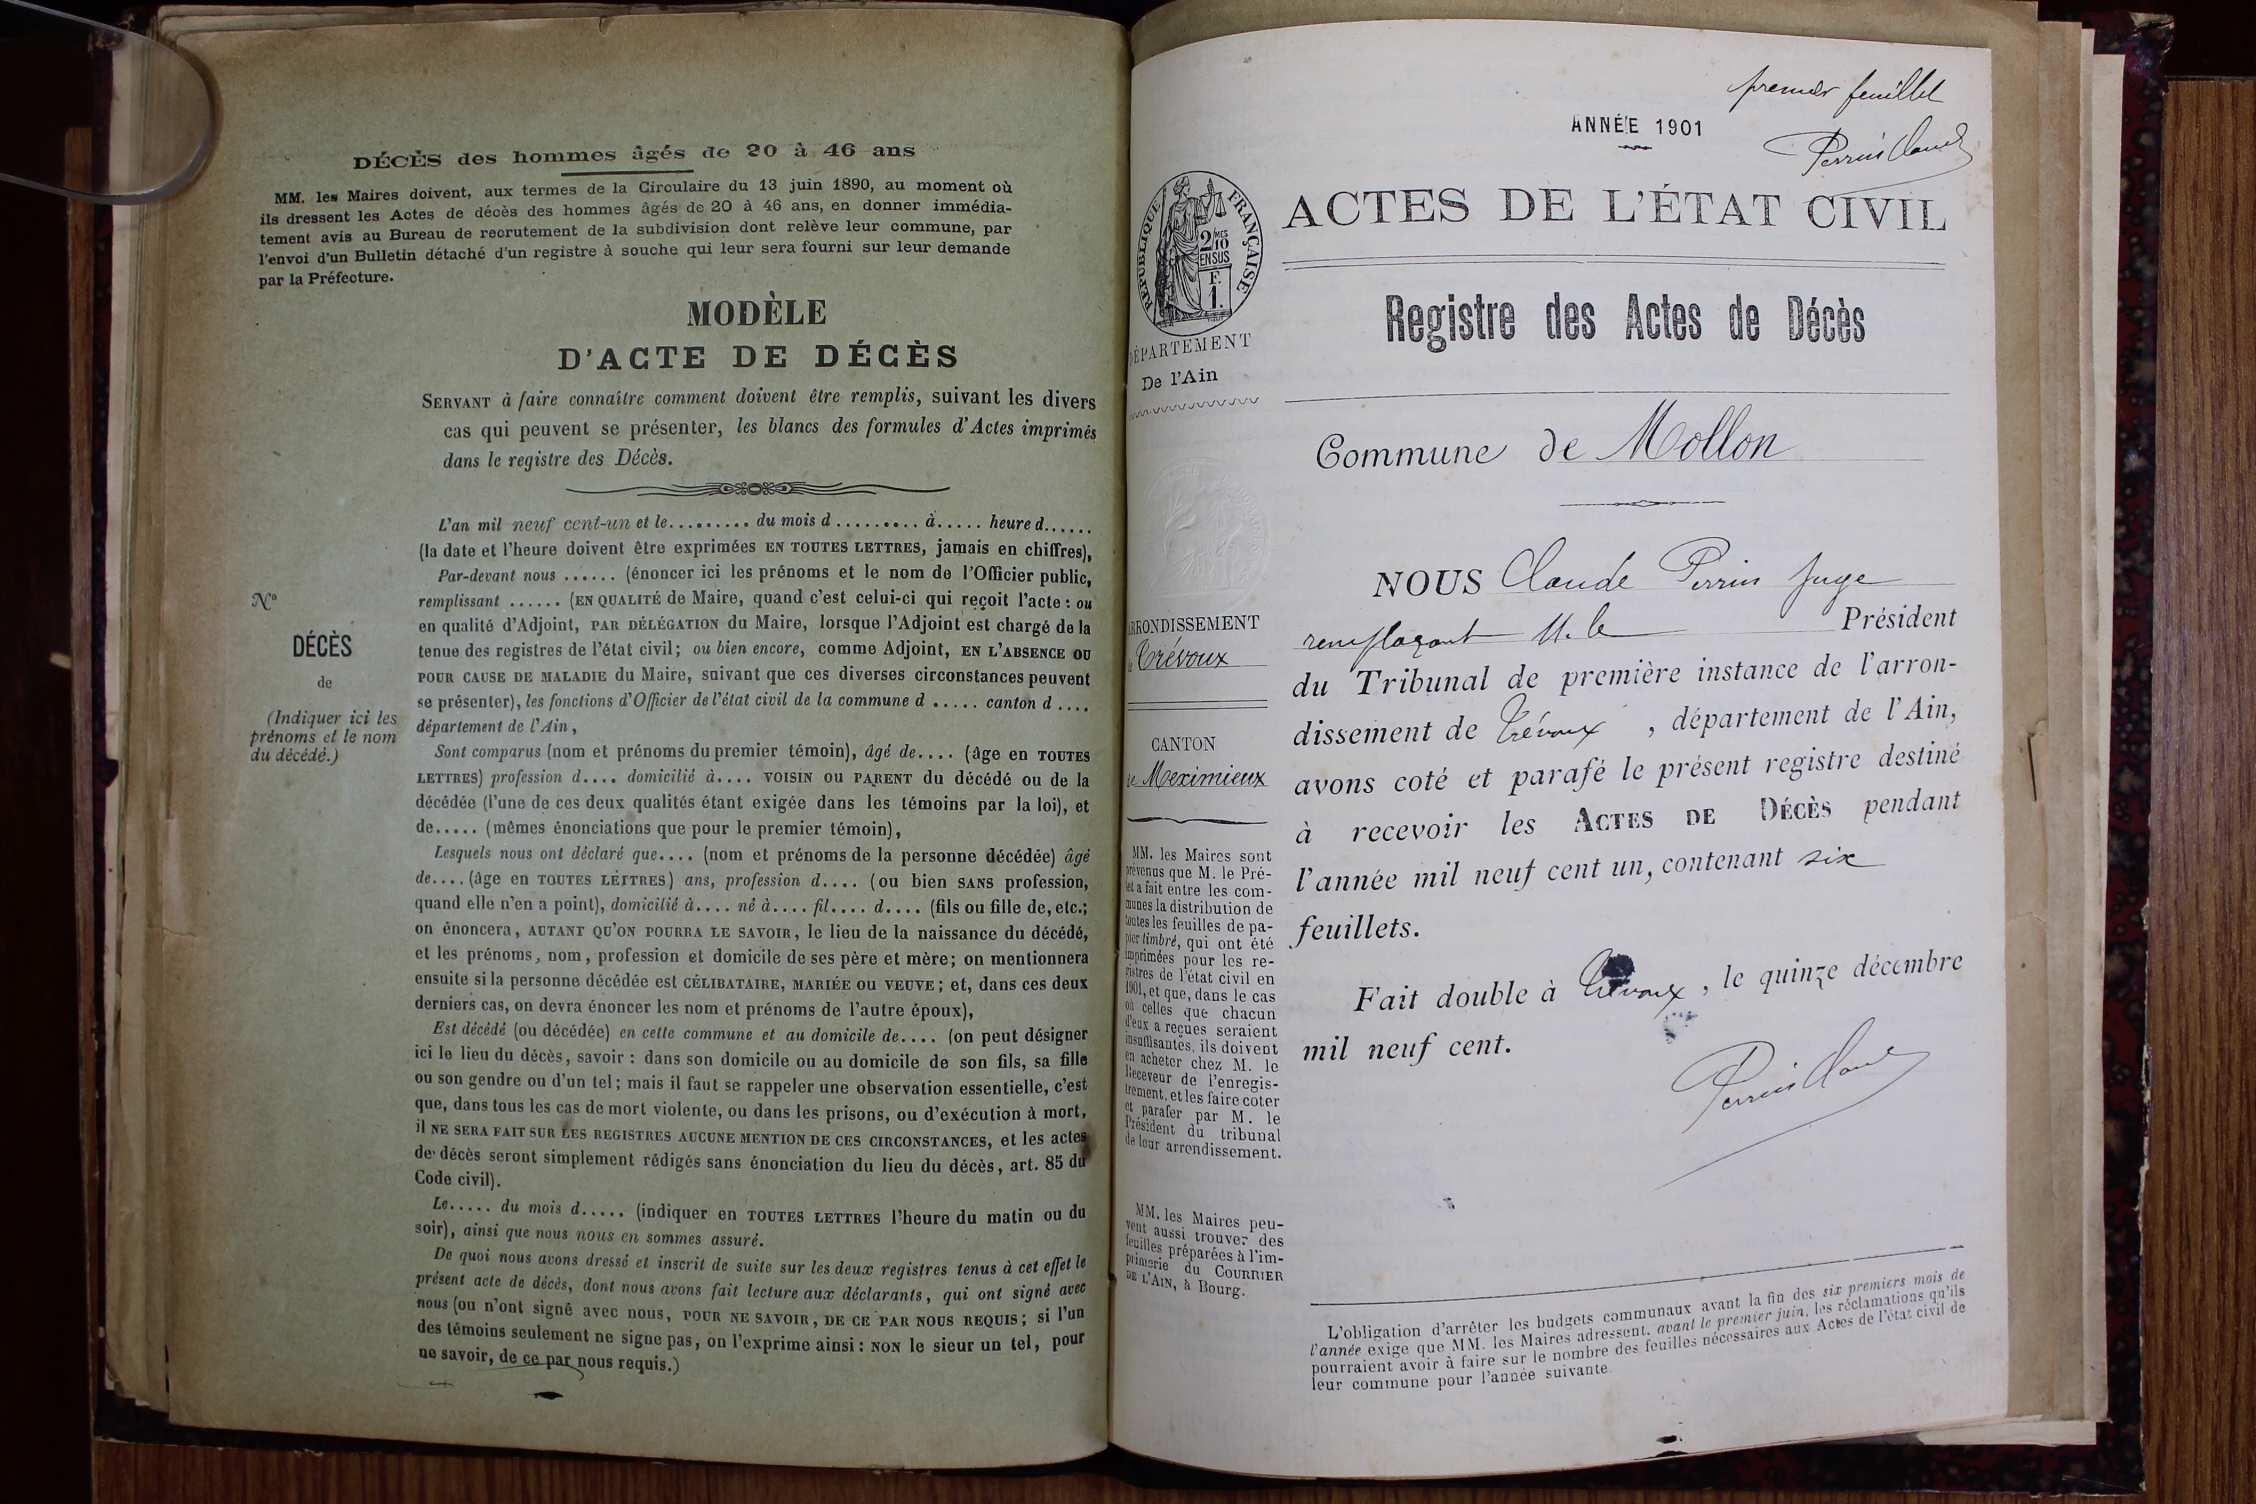 DÉCÈS des hommes âgés de 20 à 46 ans
MM. les Maires doivent, aux termes de la Circulaire du 13 juin 1890, au moment où
ils dressent les Actes de décès des hommes âgés de 20 à 46 ans, en donner immédia-
tement avis au Bureau de recrutement de la subdivision dont relève leur commune, par
l'envoi d'un Bulletin détaché d'un registre à souche qui leur sera fourni sur leur demande
par la Préfecture.
MODÈLE
D'ACTE DE DÉCÈS
SERVANT à faire connaître comment doivent être remplis, suivant les divers
cas qui peuvent se présenter, les blancs des formules d'Actes imprimés
dans le registre des Décès.
L'an mil neuf cent-un et le......... du mois d ......... à..... heure d......
(la date et l'heure doivent être exprimées EN TOUTES LETTRES, jamais en chiffres),
Par-devant nous ...... (énoncer ici les prénoms et le nom de l'Officier public,
remplissant ...... (EN QUALITÉ de Maire, quand c'est celui-ci qui reçoit l'acte : ou
en qualité d'Adjoint, PAR DÉLÉGATION du Maire, lorsque l'Adjoint est chargé de la
tenue des registres de l'état civil; ou bien encore, comme Adjoint, EN L'ABSENCE OU
POUR CAUSE DE MALADIE du Maire, suivant que ces diverses circonstances peuvent
se présenter), les fonctions d'Officier de l'état civil de la commune d ..... canton d ....
département de l'Ain,
Sont comparus (nom et prénoms du premier témoin), âgé de.... (âge en TOUTES
LETTRES) profession d.... domicilié à.... VOISIN OU PARENT du décédé ou de la
décédée (l'une de ces deux qualités étant exigée dans les témoins par la loi), et
de..... (mêmes énonciations que pour le premier témoin),
Lesquels nous ont déclaré que.... (nom et prénoms de la personne décédée) âgé
de.... (âge en TOUTES LETTRES) ans, profession d.... (ou bien SANS profession,
quand elle n'en a point), domicilié à.... né à.... fil.... d.... (fils ou fille de, etc.;
on énoncera, AUTANT QU'ON POURRA LE SAVOIR, le lieu de la naissance du décédé,
et les prénoms, nom, profession et domicile de ses père et mère; on mentionnera
ensuite si la personne décédée est CÉLIBATAIRE, MARIÉE OU VEUVE; et, dans ces deux
derniers cas, on devra énoncer les nom et prénoms de l'autre époux),
Est décédé (ou décédée) en cette commune et au domicile de.... (on peut désigner
ici le lieu du décès, savoir : dans son domicile ou au domicile de son fils, sa fille
ou son gendre ou d'un tel; mais il faut se rappeler une observation essentielle, c'est
que, dans tous les cas de mort violente, ou dans les prisons, ou d'exécution à mort,
il NE SERA FAIT SUR LES REGISTRES AUCUNE MENTION DE CES CIRCONSTANCES, et les actes
de décès seront simplement rédigés sans énonciation du lieu du décès, art. 85 du
Code civil).
Le..... du mois d..... (indiquer en TOUTES LETTRES l'heure du matin ou du
soir), ainsi que nous nous en sommes assuré.
De quoi nous avons dressé et inscrit de suite sur les deux registres tenus à cet effet le
présent acte de décès, dont nous avons fait lecture aux déclarants, qui ont signé avec
nous (ou n'ont signé avec nous, POUR NE SAVOIR, DE CE PAR NOUS REQUIS; si l'un
des témoins seulement ne signe pas, on l'exprime ainsi : NON le sieur un tel, pour
ne savoir, de ce par nous requis.)
N°
DÉCÈS
de
(Indiquer ici les
prénoms et le nom
du décédé.)
premier feuillet
ANNÉE 1901
Perrin Claude
ACTES DE L'ÉTAT CIVIL
RÉPUBLIQUE FRANÇAISE
2/10 MES
EN SUS
F.
1.
Registre des Actes de Décès
DÉPARTEMENT
De l'Ain
Commune de Mollon
NOUS Claude Perrin Juge
remplaçant M. le Président
du Tribunal de première instance de l'arron-
dissement de Trévoux, département de l'Ain,
avons coté et parafé le présent registre destiné
à recevoir les ACTES DE DÉCÈS pendant
l'année mil neuf cent un, contenant six
feuillets.
Fait double à Trévoux, le quinze décembre
mil neuf cent.
Perrin Claude
ARRONDISSEMENT
de Trévoux
CANTON
de Meximieux
MM. les Maires sont
prévenus que M. le Pré-
fet a fait entre les com-
munes la distribution de
toutes les feuilles de pa-
pier timbré, qui ont été
imprimées pour les re-
gistres de l'état civil en
1901, et que, dans le cas
où celles que chacun
d'eux a reçues seraient
insuffisantes, ils doivent
en acheter chez M. le
Receveur de l'enregis-
trement, et les faire coter
et parafer par M. le
Président du tribunal
de leur arrondissement.
MM. les Maires peu-
vent aussi trouver des
feuilles préparées à l'im-
primerie du COURRIER
DE L'AIN, à Bourg.
L'obligation d'arrêter les budgets communaux avant la fin des six premiers mois de
l'année exige que MM. les Maires adressent, avant le premier juin, les réclamations qu'ils
pourraient avoir à faire sur le nombre des feuilles nécessaires aux Actes de l'état civil de
leur commune pour l'année suivante.